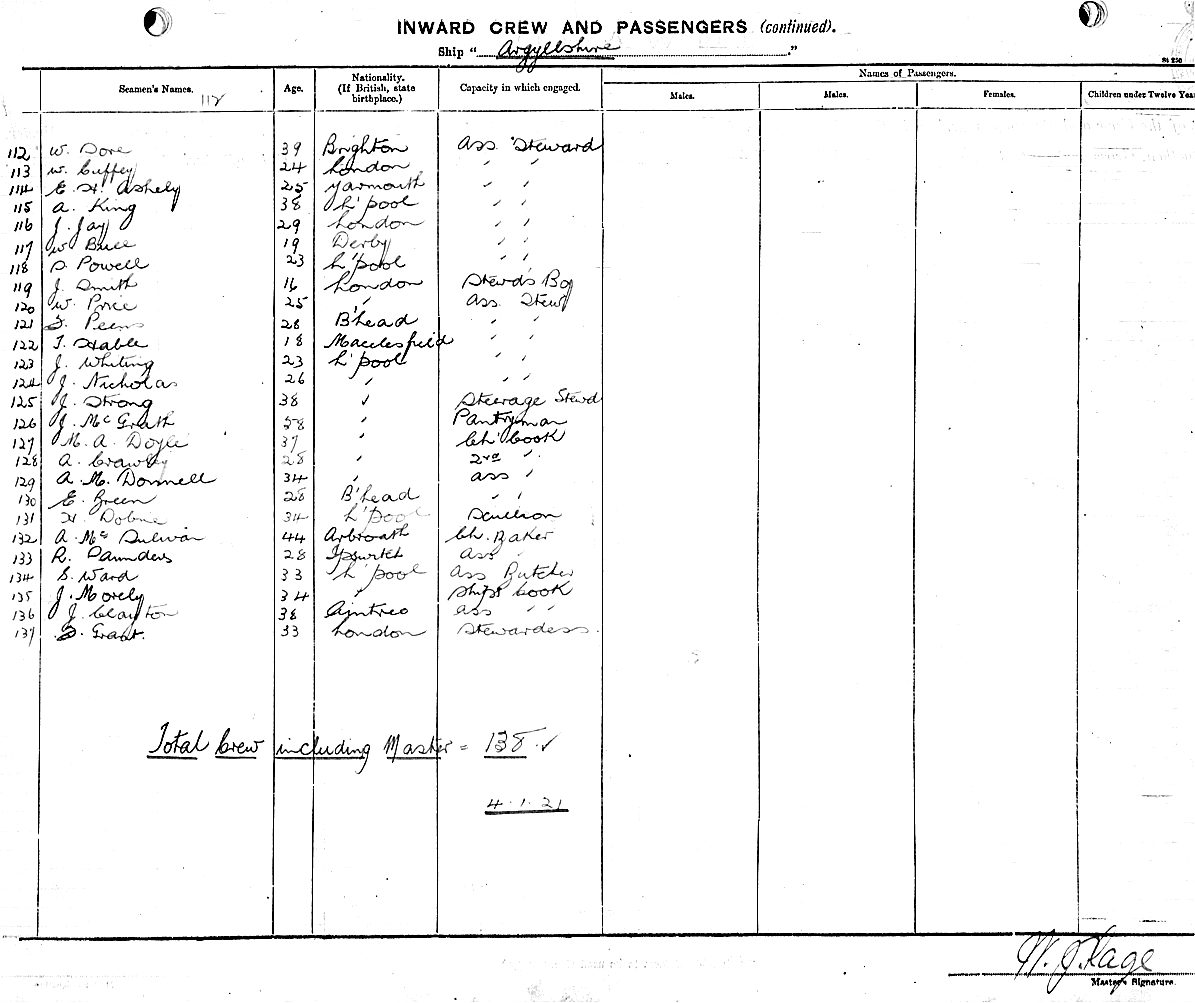 INWARD CREW AND PASSENGERS (continued).
Ship "Argyllshire."
Seamen's Names. 112 Age. Nationality. (If British, state birthplace.) Capacity in which engaged. Names of Passengers.
Males. Males. Females. Children under Twelve Yea
112 W. Dore 39 Brighton Ass Steward
113 W. Cuffey 24 London " "
114 E. H. Ashely 25 Yarmouth " "
115 A. King 38 L'pool " "
116 J. Jay 29 London " "
117 W. Bruce 19 Derby " "
118 S. Powell 23 L'pool " "
119 J. Smith 16 London Stewd's Boy
120 W. Price 25 " Ass. Stew
121 Peers 28 B'head " "
122 T. Hable 18 Macclesfield " "
123 J. Whiting 23 L'pool " "
124 J. Nicholas 26 " " "
125 J. Strong 38 " Steerage Stewd
126 J. McGrath 58 " Pantryman
127 M. A. Doyle 37 " Ch' Cook
128 A. Crawley 28 " 2nd "
129 A. M. Donnell 34 " ass "
130 E. Green 28 B'head " "
131 H. Dobne 34 L'pool Scullion
132 A. Mc 44 Arbroath Ch. Baker
133 R. Saunders 28 Ipswitch Ass "
134 S. Ward 33 L'pool Ass Butcher
135 J. Morely 34 " Ships Cook
136 J. Clayton 38 Aintree ass " "
137 Grant. 33 London Stewardess.
Total Crew including Master = 138
4.1.21
Master's Signature.